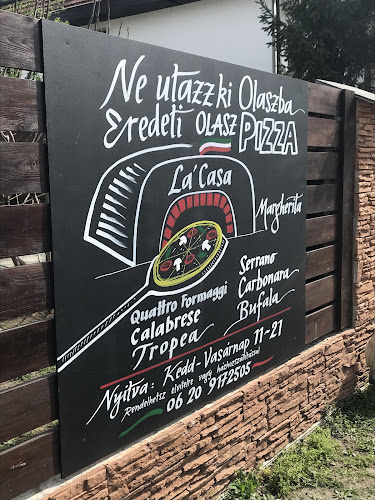 Ne utazz ki Olaszba
Eredeti OLASZ PIZZA
La' Casa
Margherita
Quattro Formaggi
Calabrese
Tropea
Serrano
Carbonara
Bufala
Nyitva: Kedd-Vasárnap 11-21
Rendelhetsz elvitelre vagy házhozszállítással
06 20 9172505